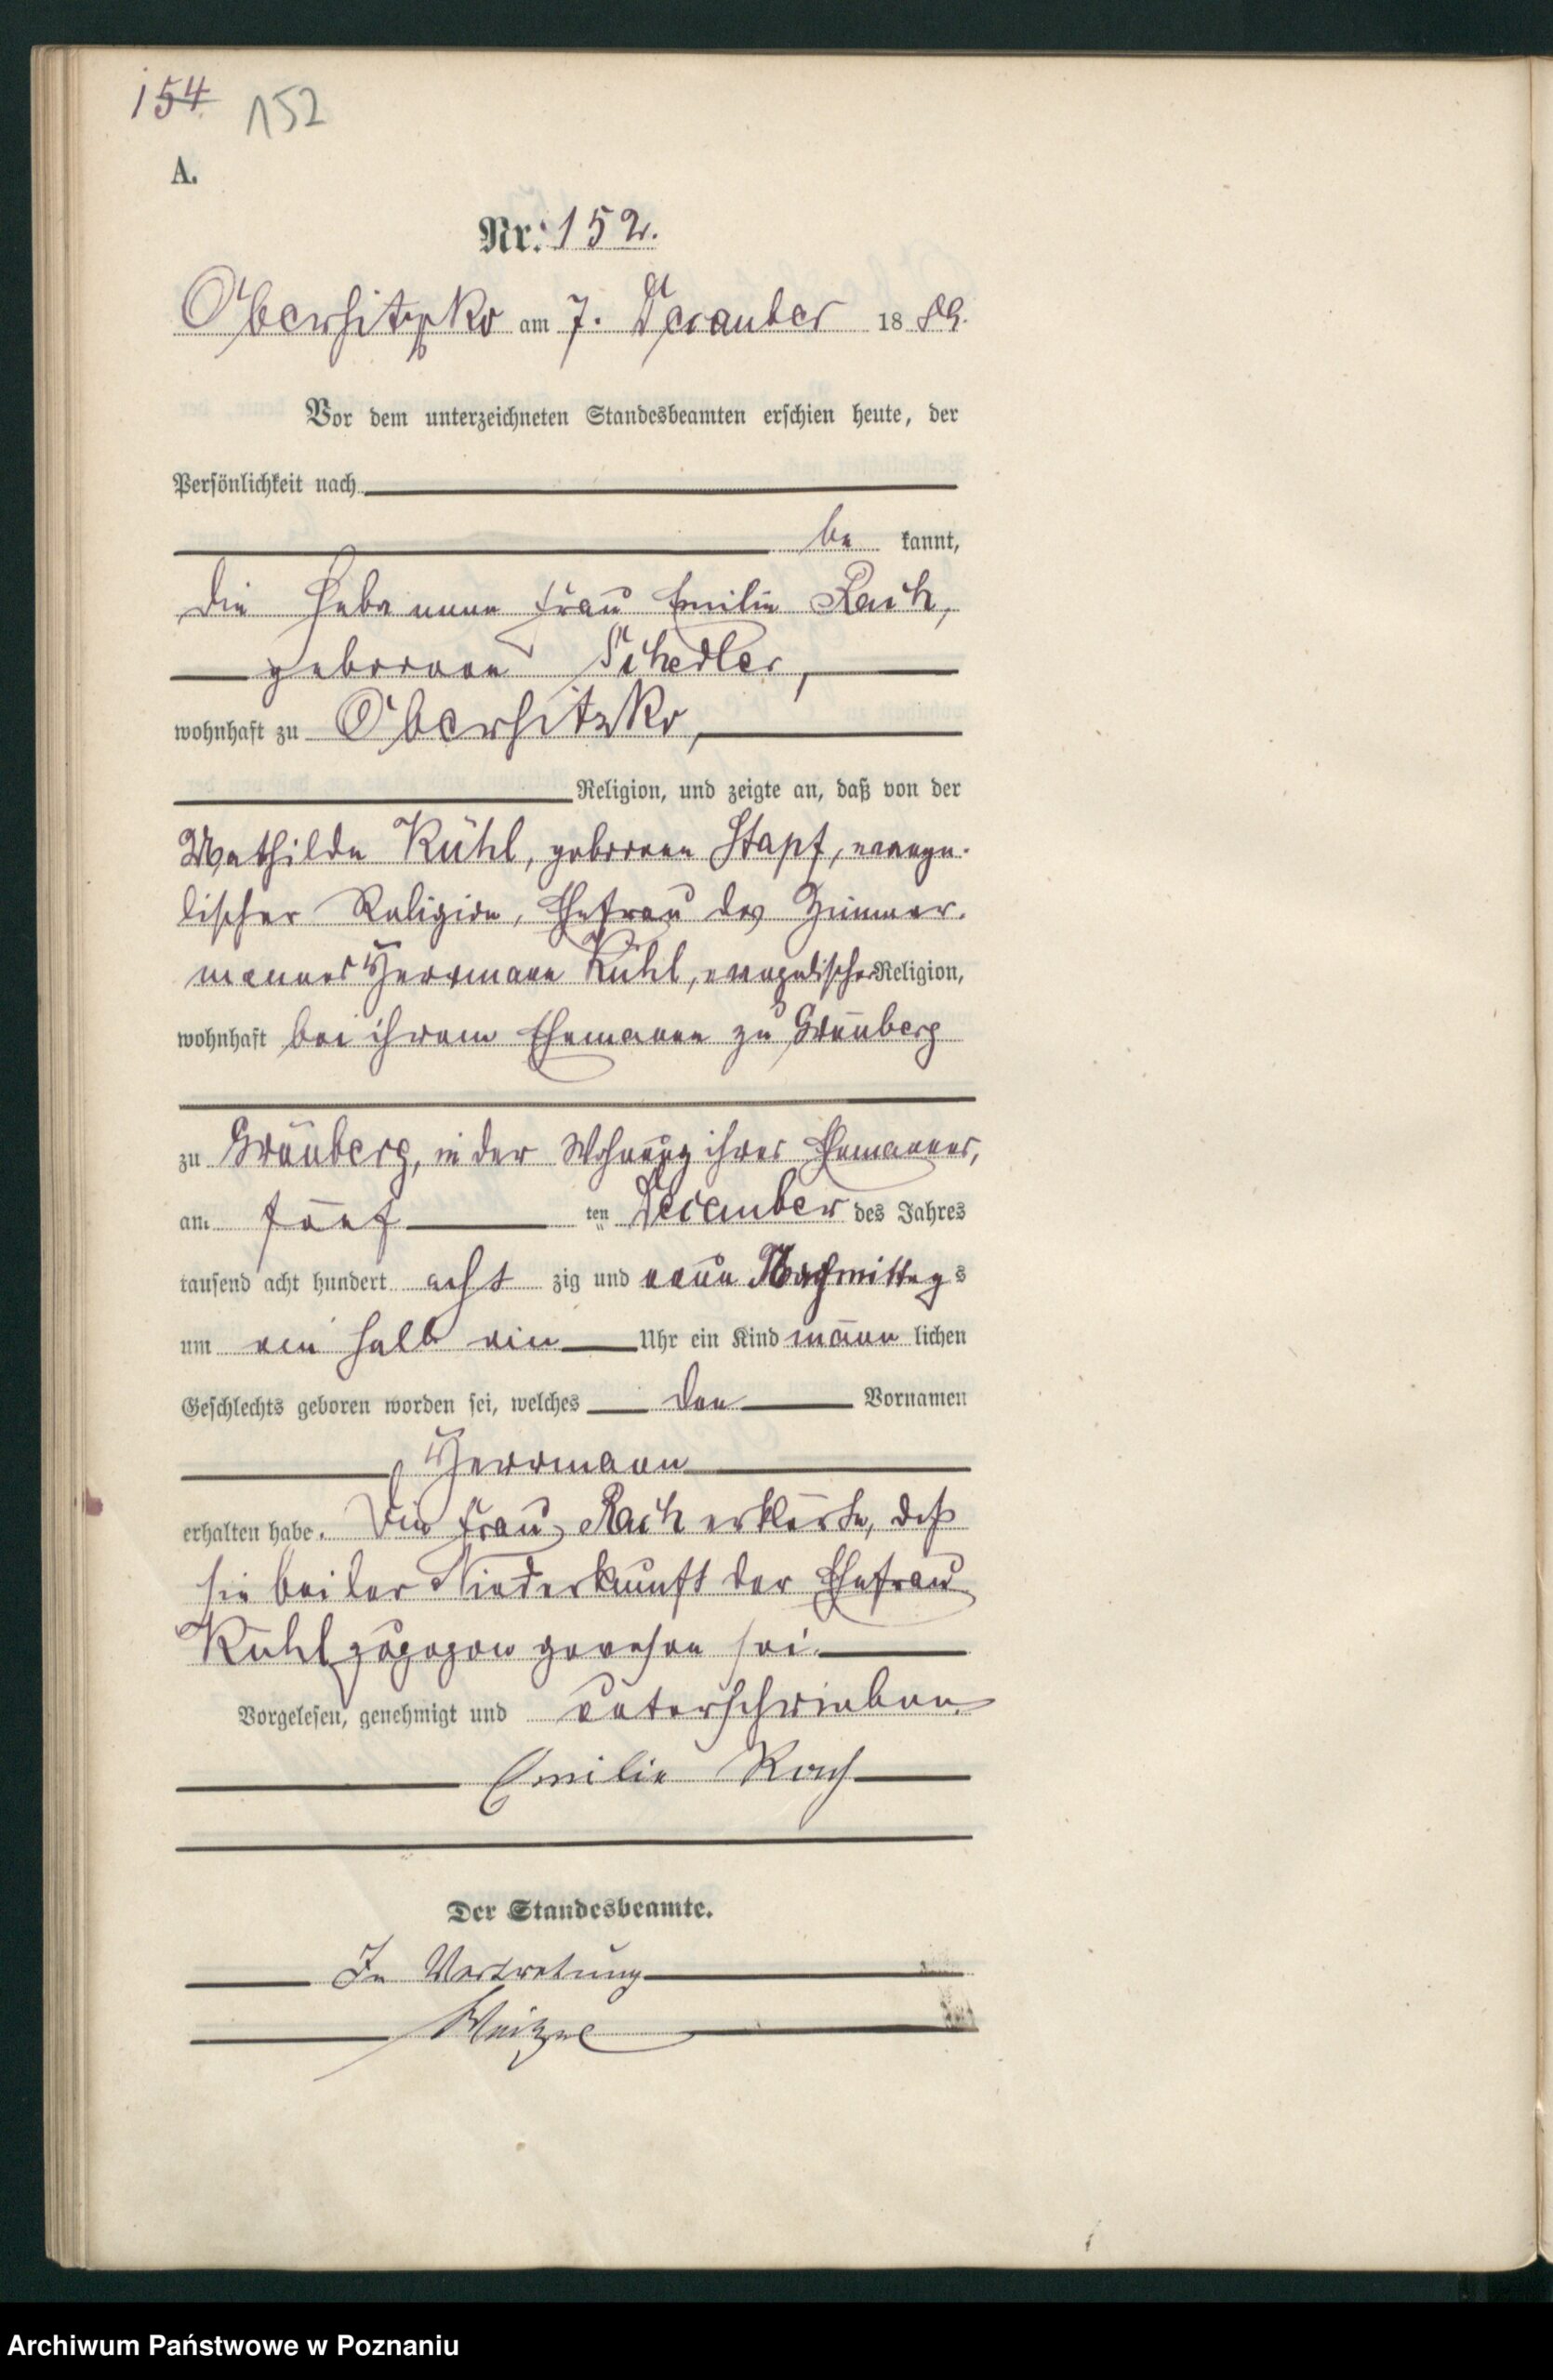 154.
152
A.
Nr. 152.
Obersitzko am 7. December 1889.
Vor dem unterzeichneten Standesbeamten erschien heute, der
Persönlichkeit nach
be kannt,
die Hebamme Frau Emilie Rach,
geborene Schedler,
wohnhaft zu Obersitzko,
Religion, und zeigte an, daß von der
Mathilde Kühl, geborene Stapf, evange-
lischer Religion, Ehefrau des Zimmer-
mannes Herrmann Kühl, evangelischer Religion,
wohnhaft bei ihrem Ehemanne zu Grünberg
zu Grünberg, in der Wohnung ihres Ehemannes,
am fünf ten December des Jahres
tausend acht hundert acht zig und neun Nachmittags
um ein halb ein Uhr ein Kind männ lichen
Geschlechts geboren worden sei, welches den Vornamen
Herrmann
erhalten habe. Die Frau Rach erklärte, daß
sie bei der Niederkunft der Ehefrau
Kühl zugegen gewesen sei.
Vorgelesen, genehmigt und unterschrieben.
Emilie Rach
Der Standesbeamte.
In Vertretung
Archiwum Państwowe w Poznaniu